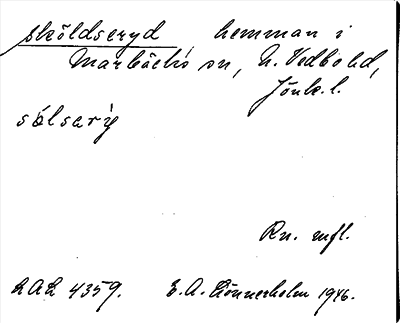 sköldseryd, hemman i
Marbäcks sn, N. Vedbo hd,
Jönk. l.
sólsarỳ
Rn. mfl.
LAL 4359. E. A. Lönnerholm 1946.